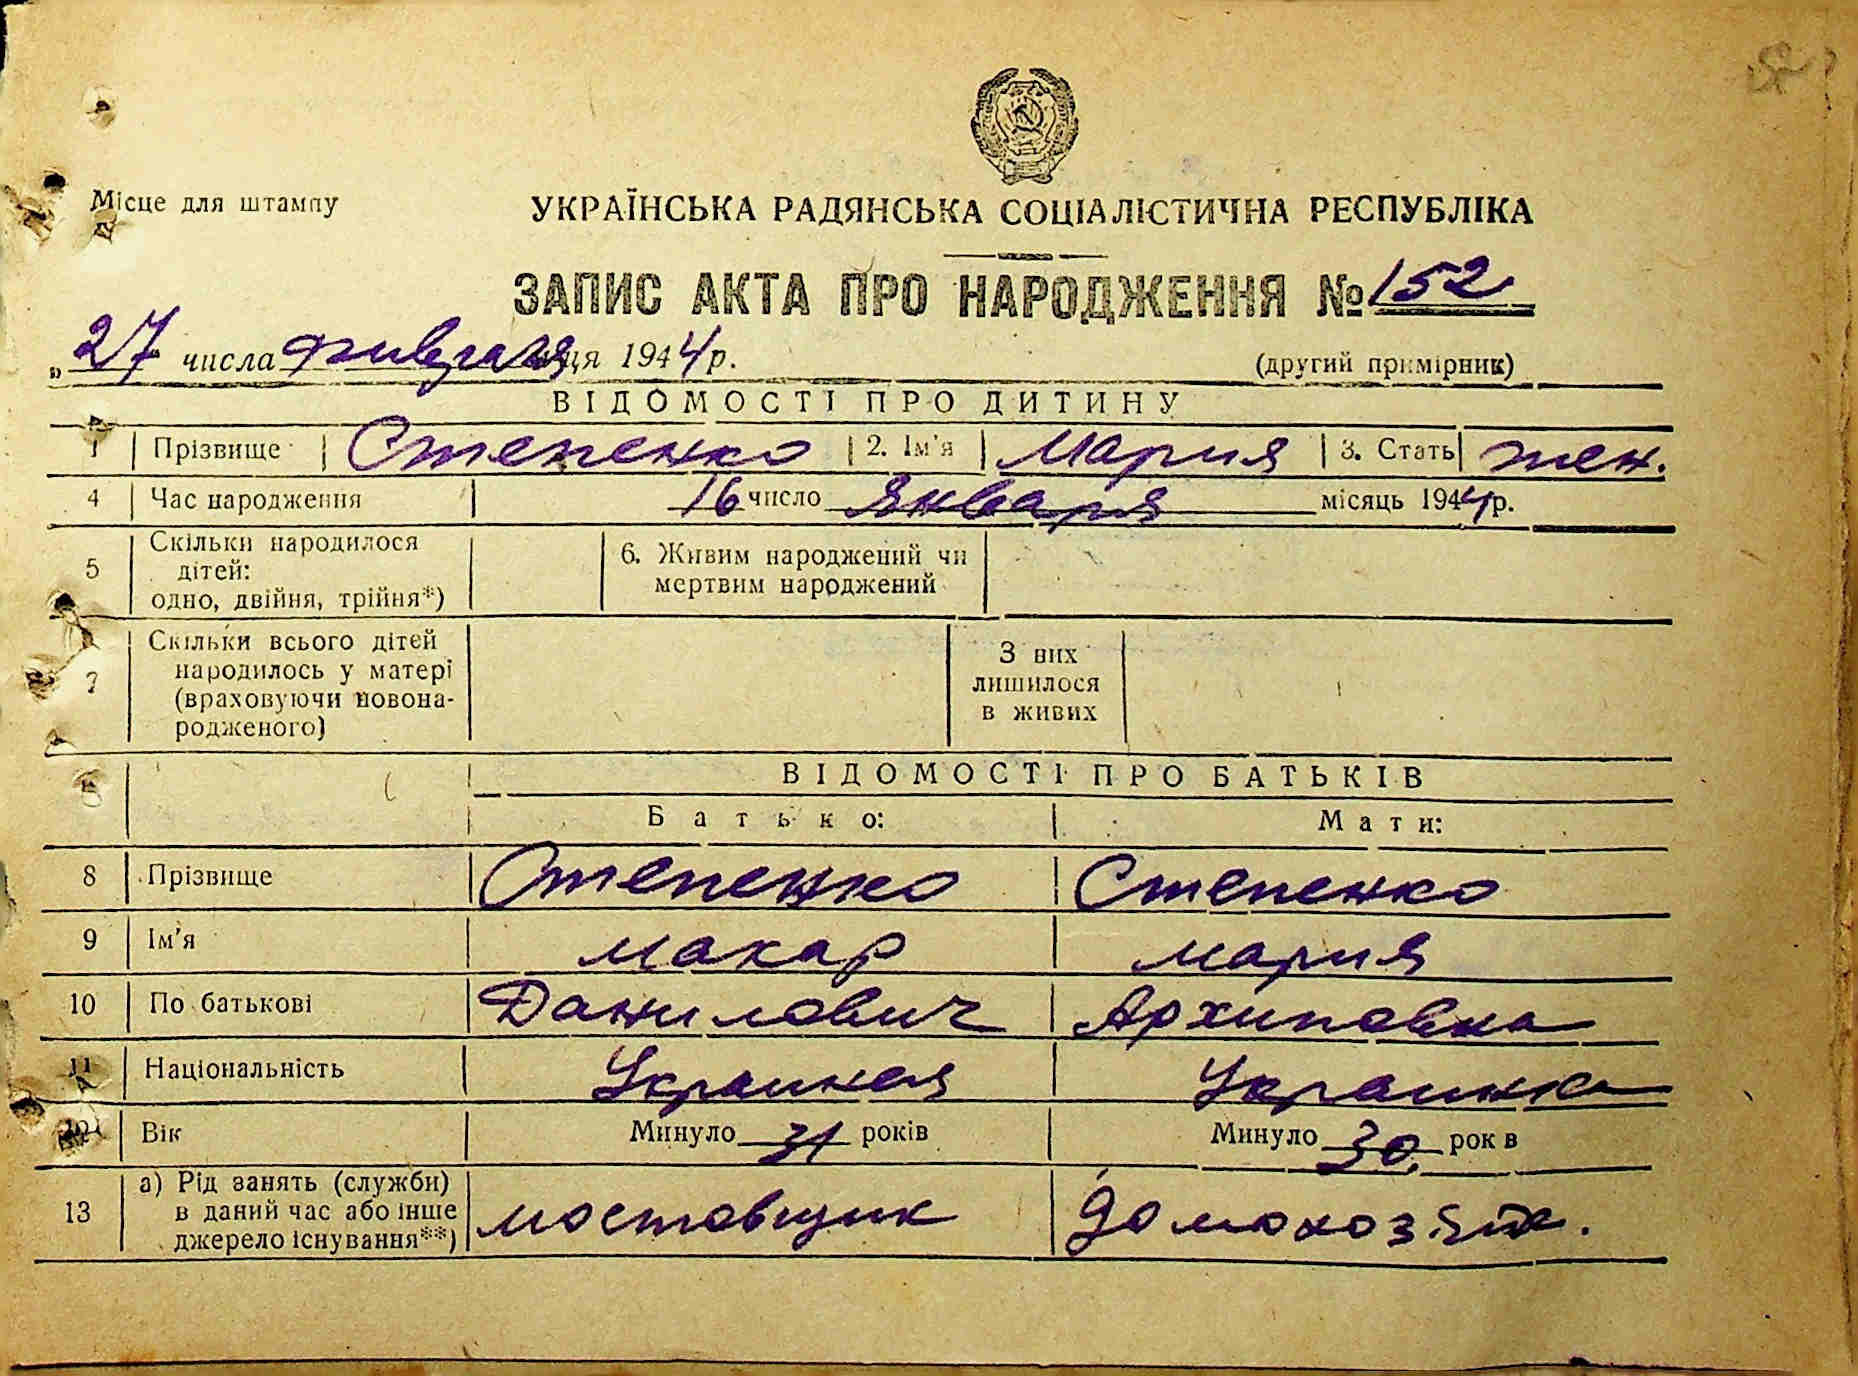 Місце для штампу
УКРАЇНСЬКА РАДЯНСЬКА СОЦІАЛІСТИЧНА РЕСПУБЛІКА
ЗАПИС АКТА ПРО НАРОДЖЕННЯ № 152
„27" числа февраля місяця 1944 р. (другий примірник)
ВІДОМОСТІ ПРО ДИТИНУ
1 Прізвище Степенко 2. Ім'я Мария 3. Стать жен.
4 Час народження 16 число января місяць 1944 р.
5 Скільки народилося дітей: одно, двійня, трійня*) 6. Живим народжений чи мертвим народжений
7 Скільки всього дітей народилось у матері (враховуючи новонародженого) З них лишилося в живих
ВІДОМОСТІ ПРО БАТЬКІВ
Батько: Мати:
8 Прізвище Степенко Степенко
9 Ім'я Макар Мария
10 По батькові Данилович Архиповна
11 Національність Украинец Украинка
12 Вік Минуло 31 років Минуло 30 років
13 а) Рід занять (служби) в даний час або інше джерело існування**) мостовщик домохоз.